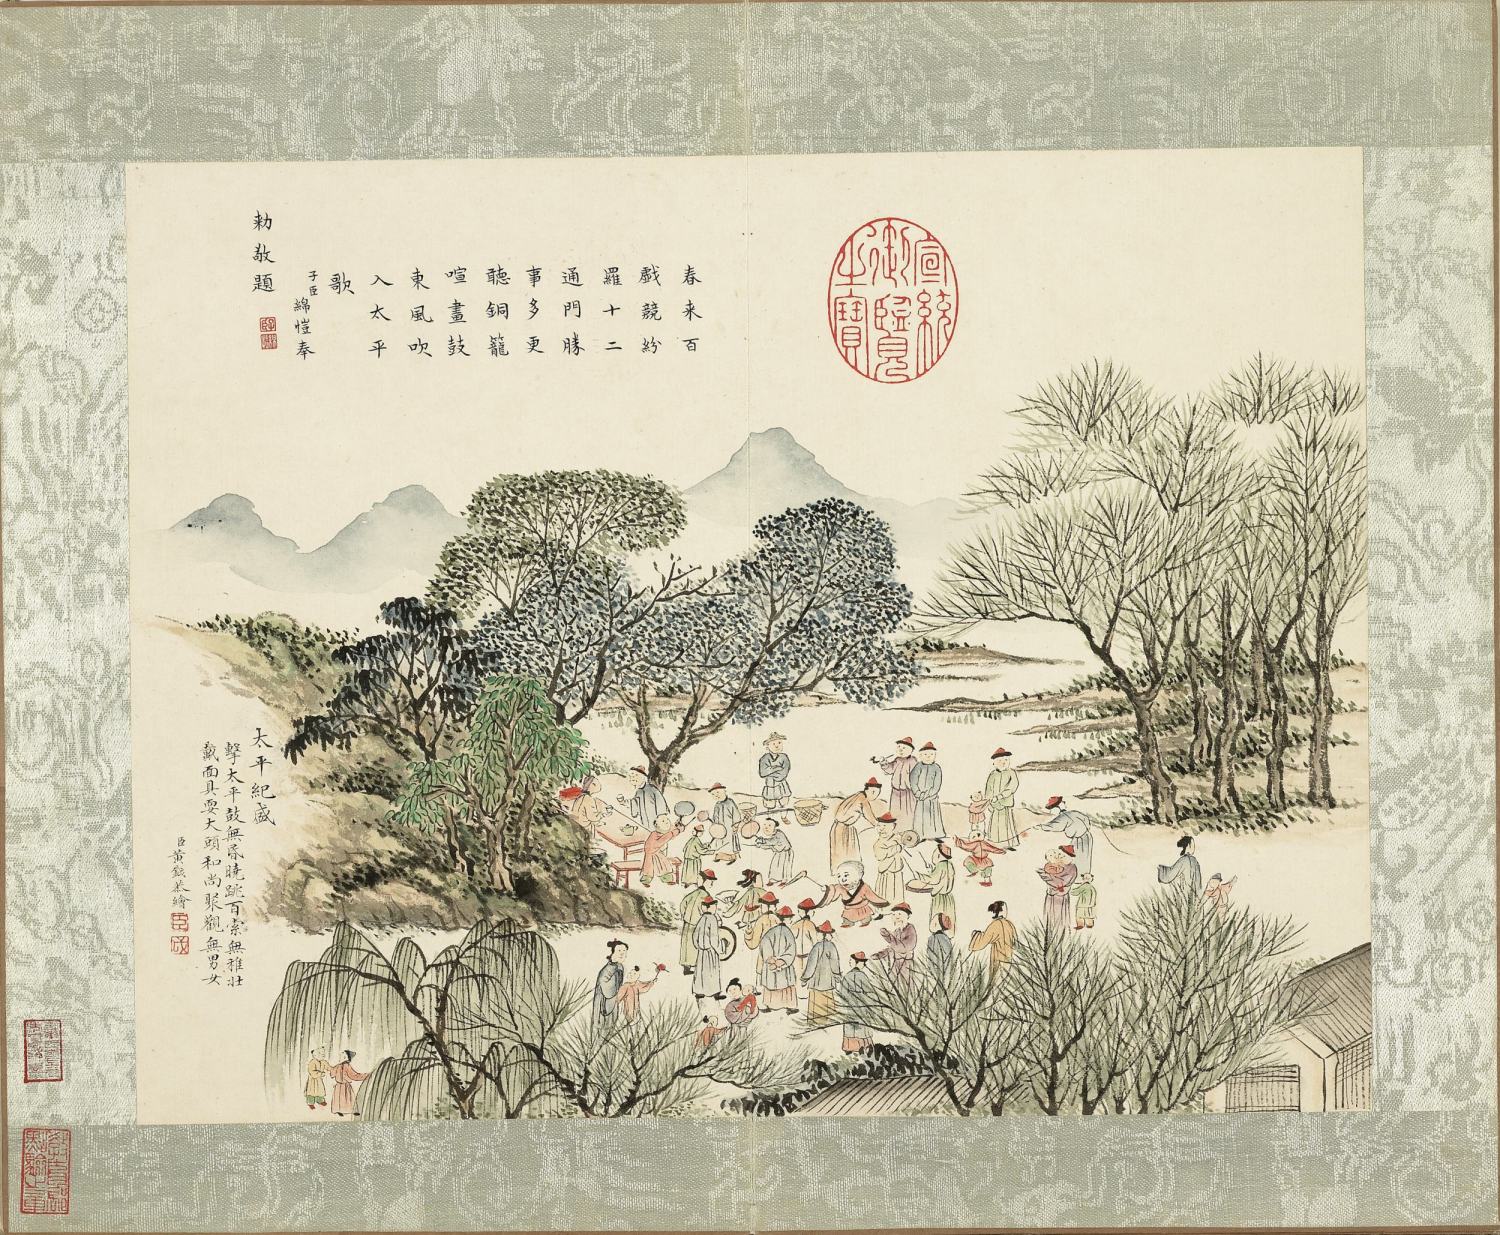 宣統
御覽
之寶
春来百
戲競紛
羅十二
通門勝
事多更
聽銅籠
喧畫鼓
東風吹
入太平
歌
子臣綿愷奉
勅敬題
太平紀盛
擊太平鼓無昏曉跳百索無稚壯
戴面具耍大頭和尚聚觀無男女
臣黃鉞恭繪
臣